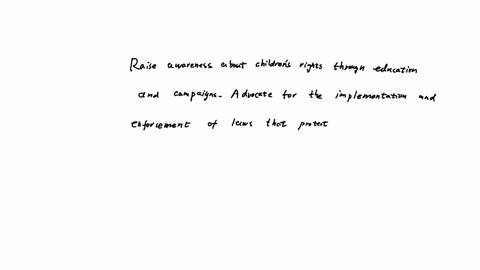 Raise awareness about children's rights through education
and campaigns. Advocate for the implementation and
enforcement of laws that protect